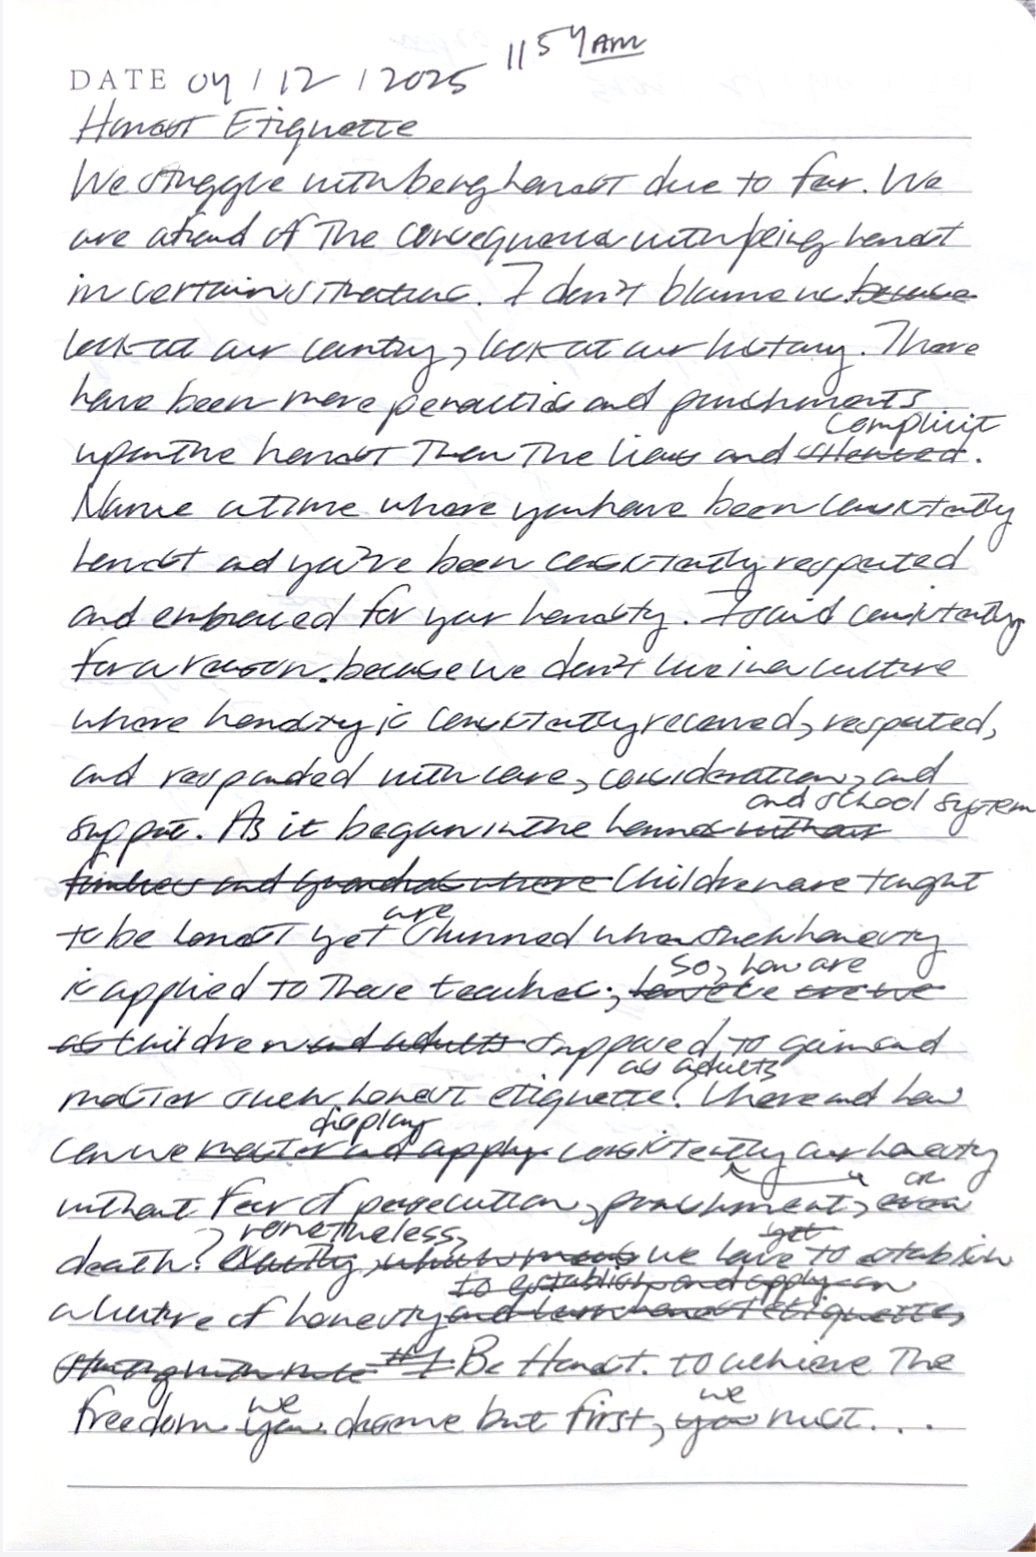 11 54 AM
DATE 04 / 12 / 2025
Honest Etiquette
We struggle with being honest due to fear. We
are afraid of the consequence with being honest
in certain situations. I don't blame us because
look at our country, look at our history. There
have been more penalties and punishments
complicit
upon the honest than the liars and silenced.
Name a time where you have been consistently
honest and you've been consistently respected
and embraced for your honesty. I said consistently
for a reason. because we don't live in a culture
where honesty is consistently received, respected,
and responded with care, consideration, and
and school system
support. As it began in the homes without
families and guardians where Children are taught
are
to be honest yet shunned when their honesty
So, how are
is applied to these teachers; are we
as children and adults supposed to gain and
as adults
master such honest etiquette? Where and how
display
can we master and apply consistently our honesty
or
without fear of persecution, punishment, even
, nonetheless, yet
death? Exactly, which means we have to establish
to establish and apply an
a culture of honesty and learn honest etiquettes
Starting with rule #1 Be Honest. to achieve the
we we
freedom you deserve but first, you must...